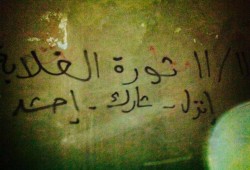 ١١/١١ ثورة الغلابة
إنزل - شارك - إحشد